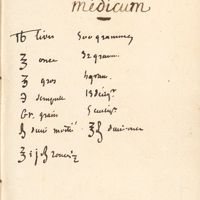 medicum
℔ livre 500 grammes
℥ once 32 gram.
ʒ gros 4 gram.
℈ scrupule 13 décigr.
Gr. grain 5 centigr.
ß demi moitié ℥ß demi-once